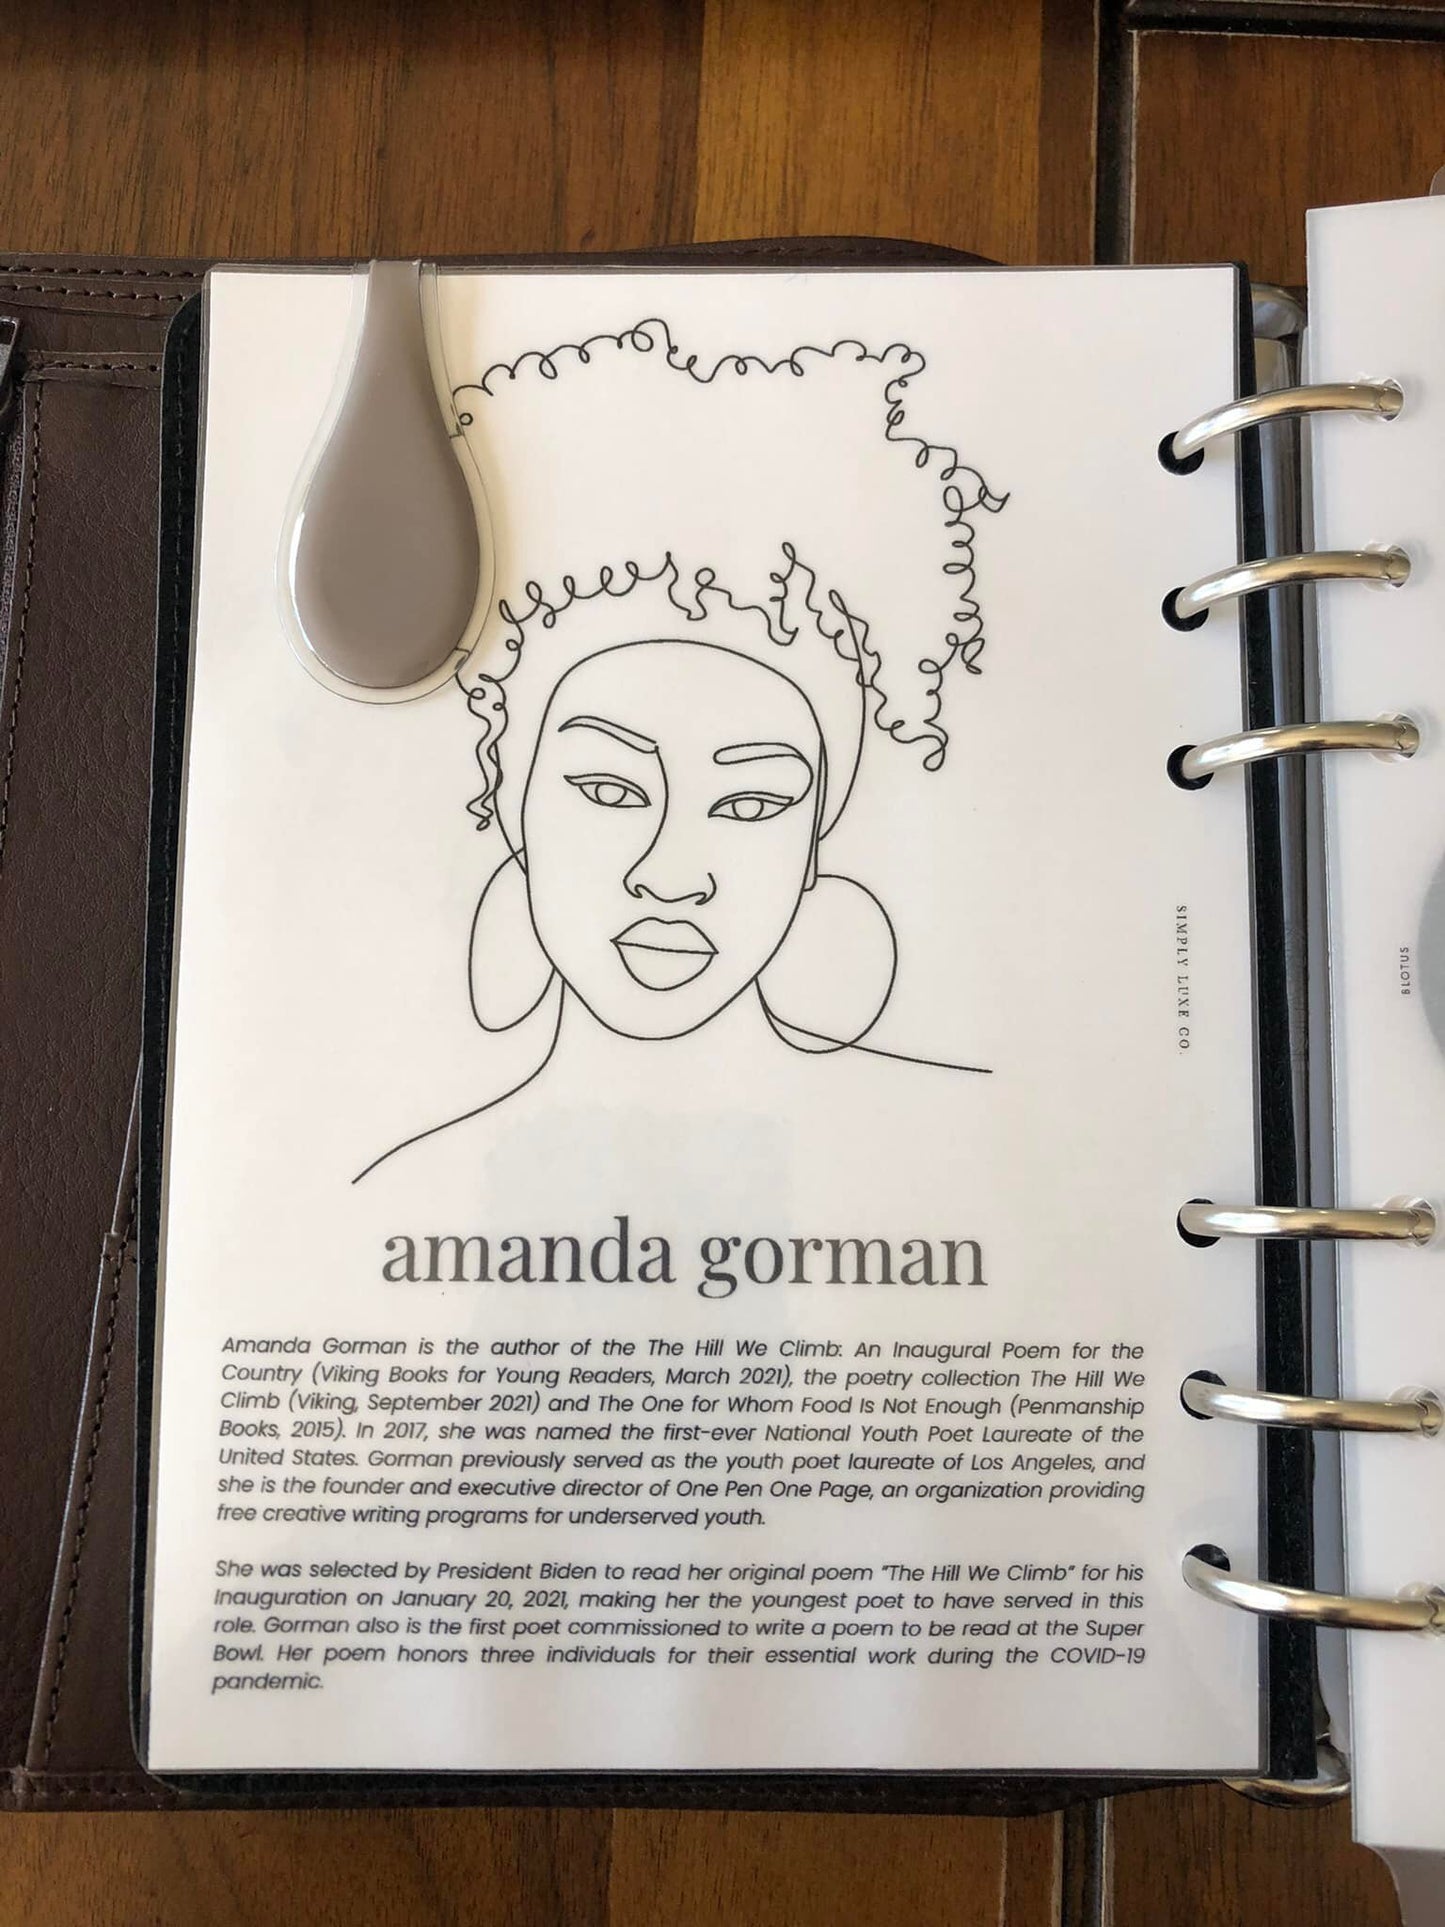 amanda gorman
Amanda Gorman is the author of the The Hill We Climb: An Inaugural Poem for the
Country (Viking Books for Young Readers, March 2021), the poetry collection The Hill We
Climb (Viking, September 2021) and The One for Whom Food Is Not Enough (Penmanship
Books, 2015). In 2017, she was named the first-ever National Youth Poet Laureate of the
United States. Gorman previously served as the youth poet laureate of Los Angeles, and
she is the founder and executive director of One Pen One Page, an organization providing
free creative writing programs for underserved youth.
She was selected by President Biden to read her original poem "The Hill We Climb" for his
Inauguration on January 20, 2021, making her the youngest poet to have served in this
role. Gorman also is the first poet commissioned to write a poem to be read at the Super
Bowl. Her poem honors three individuals for their essential work during the COVID-19
pandemic.
SIMPLY LUXE CO.
BLOTUS